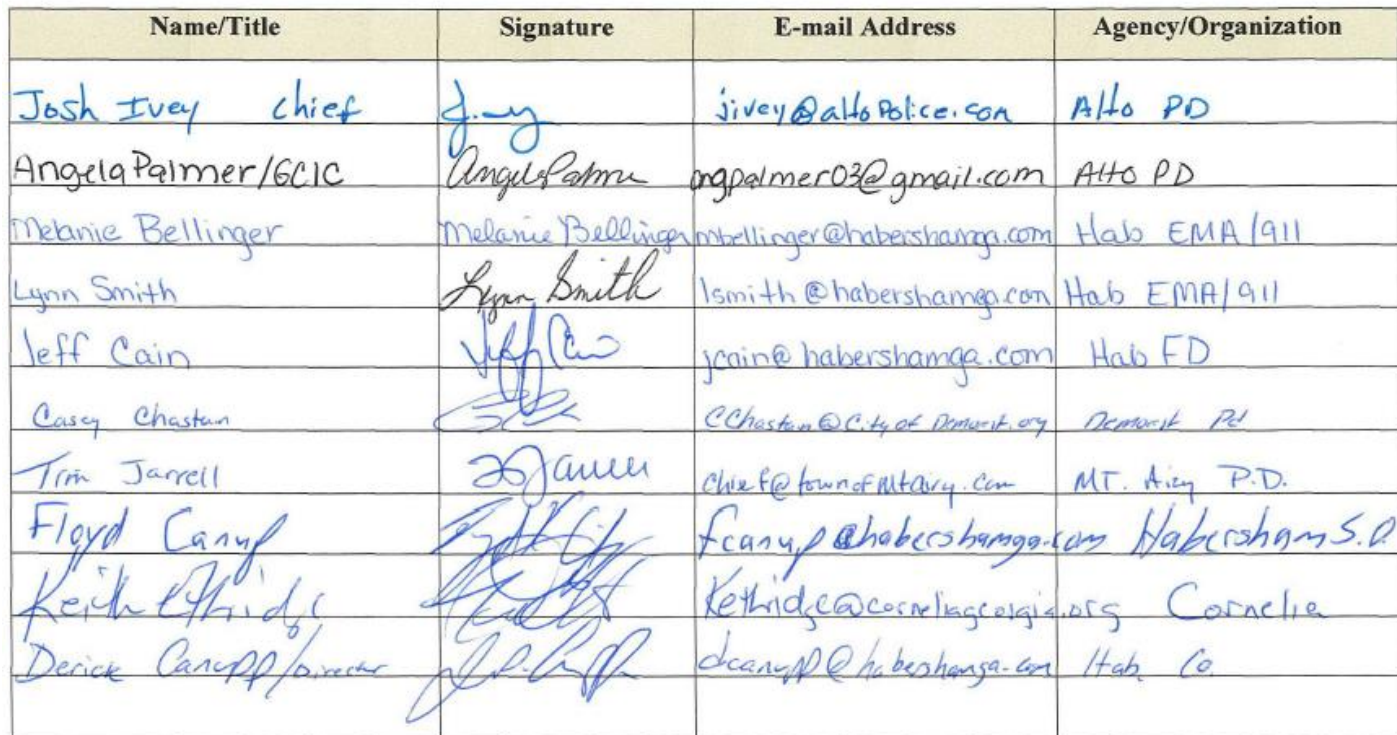 Name/Title Signature E-mail Address Agency/Organization
Josh Ivey Chief jivey@altopolice.com Alto PD
Angela Palmer/GCIC Angela Palmer angpalmer03@gmail.com Alto PD
Melanie Bellinger Melanie Bellinger mbellinger@habershamga.com Hab EMA/911
Lynn Smith Lynn Smith lsmith@habershamga.com Hab EMA/911
Jeff Cain Jeff Cain jcain@habershamga.com Hab FD
Casey Chastain CChastain@CityofDemorest.org Demorest Pd
Tim Jarrell Jarrell chief@townofmtairy.com MT. Airy P.D.
Floyd Canup fcanup@habershamga.com Habersham S.O.
Keith Ethridge Kethridge@corneliageorgia.org Cornelia
Derick Canupp/Director dcanupp@habershamga.com Hab. Co.